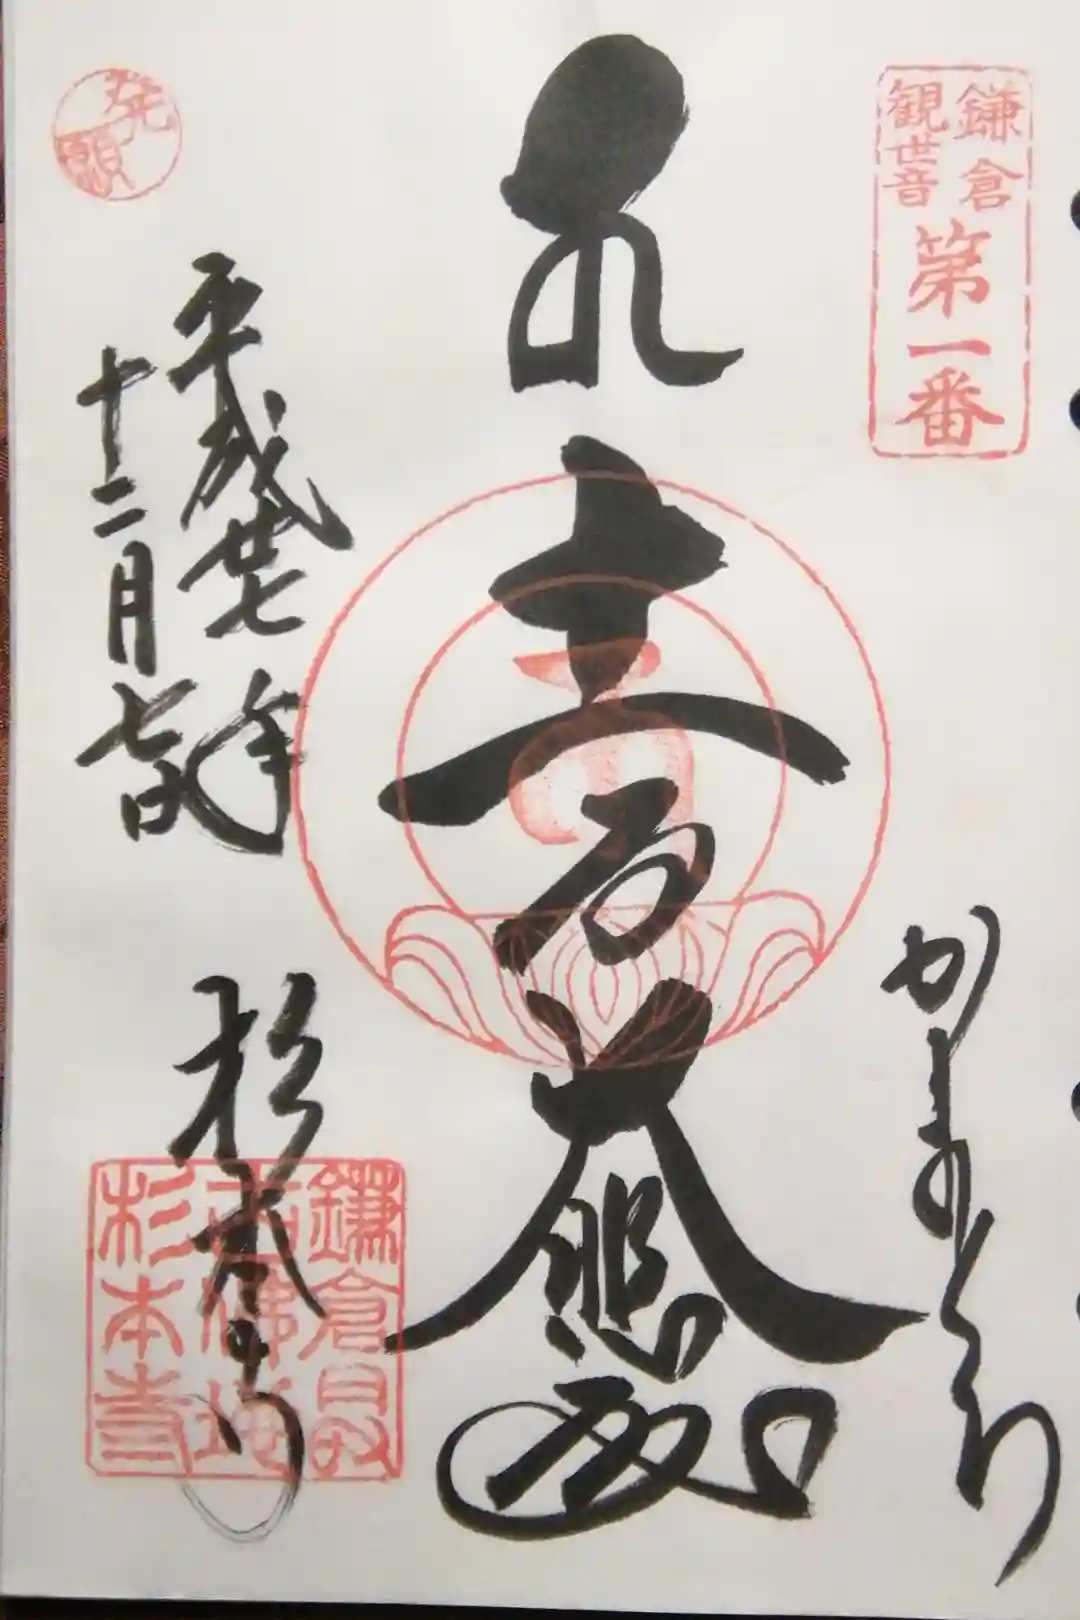 鎌倉
観世音
第一番
かまくら
十一面大悲殿
発願
平成廿七年
十二月七日
杉本寺
鎌倉
杉本寺